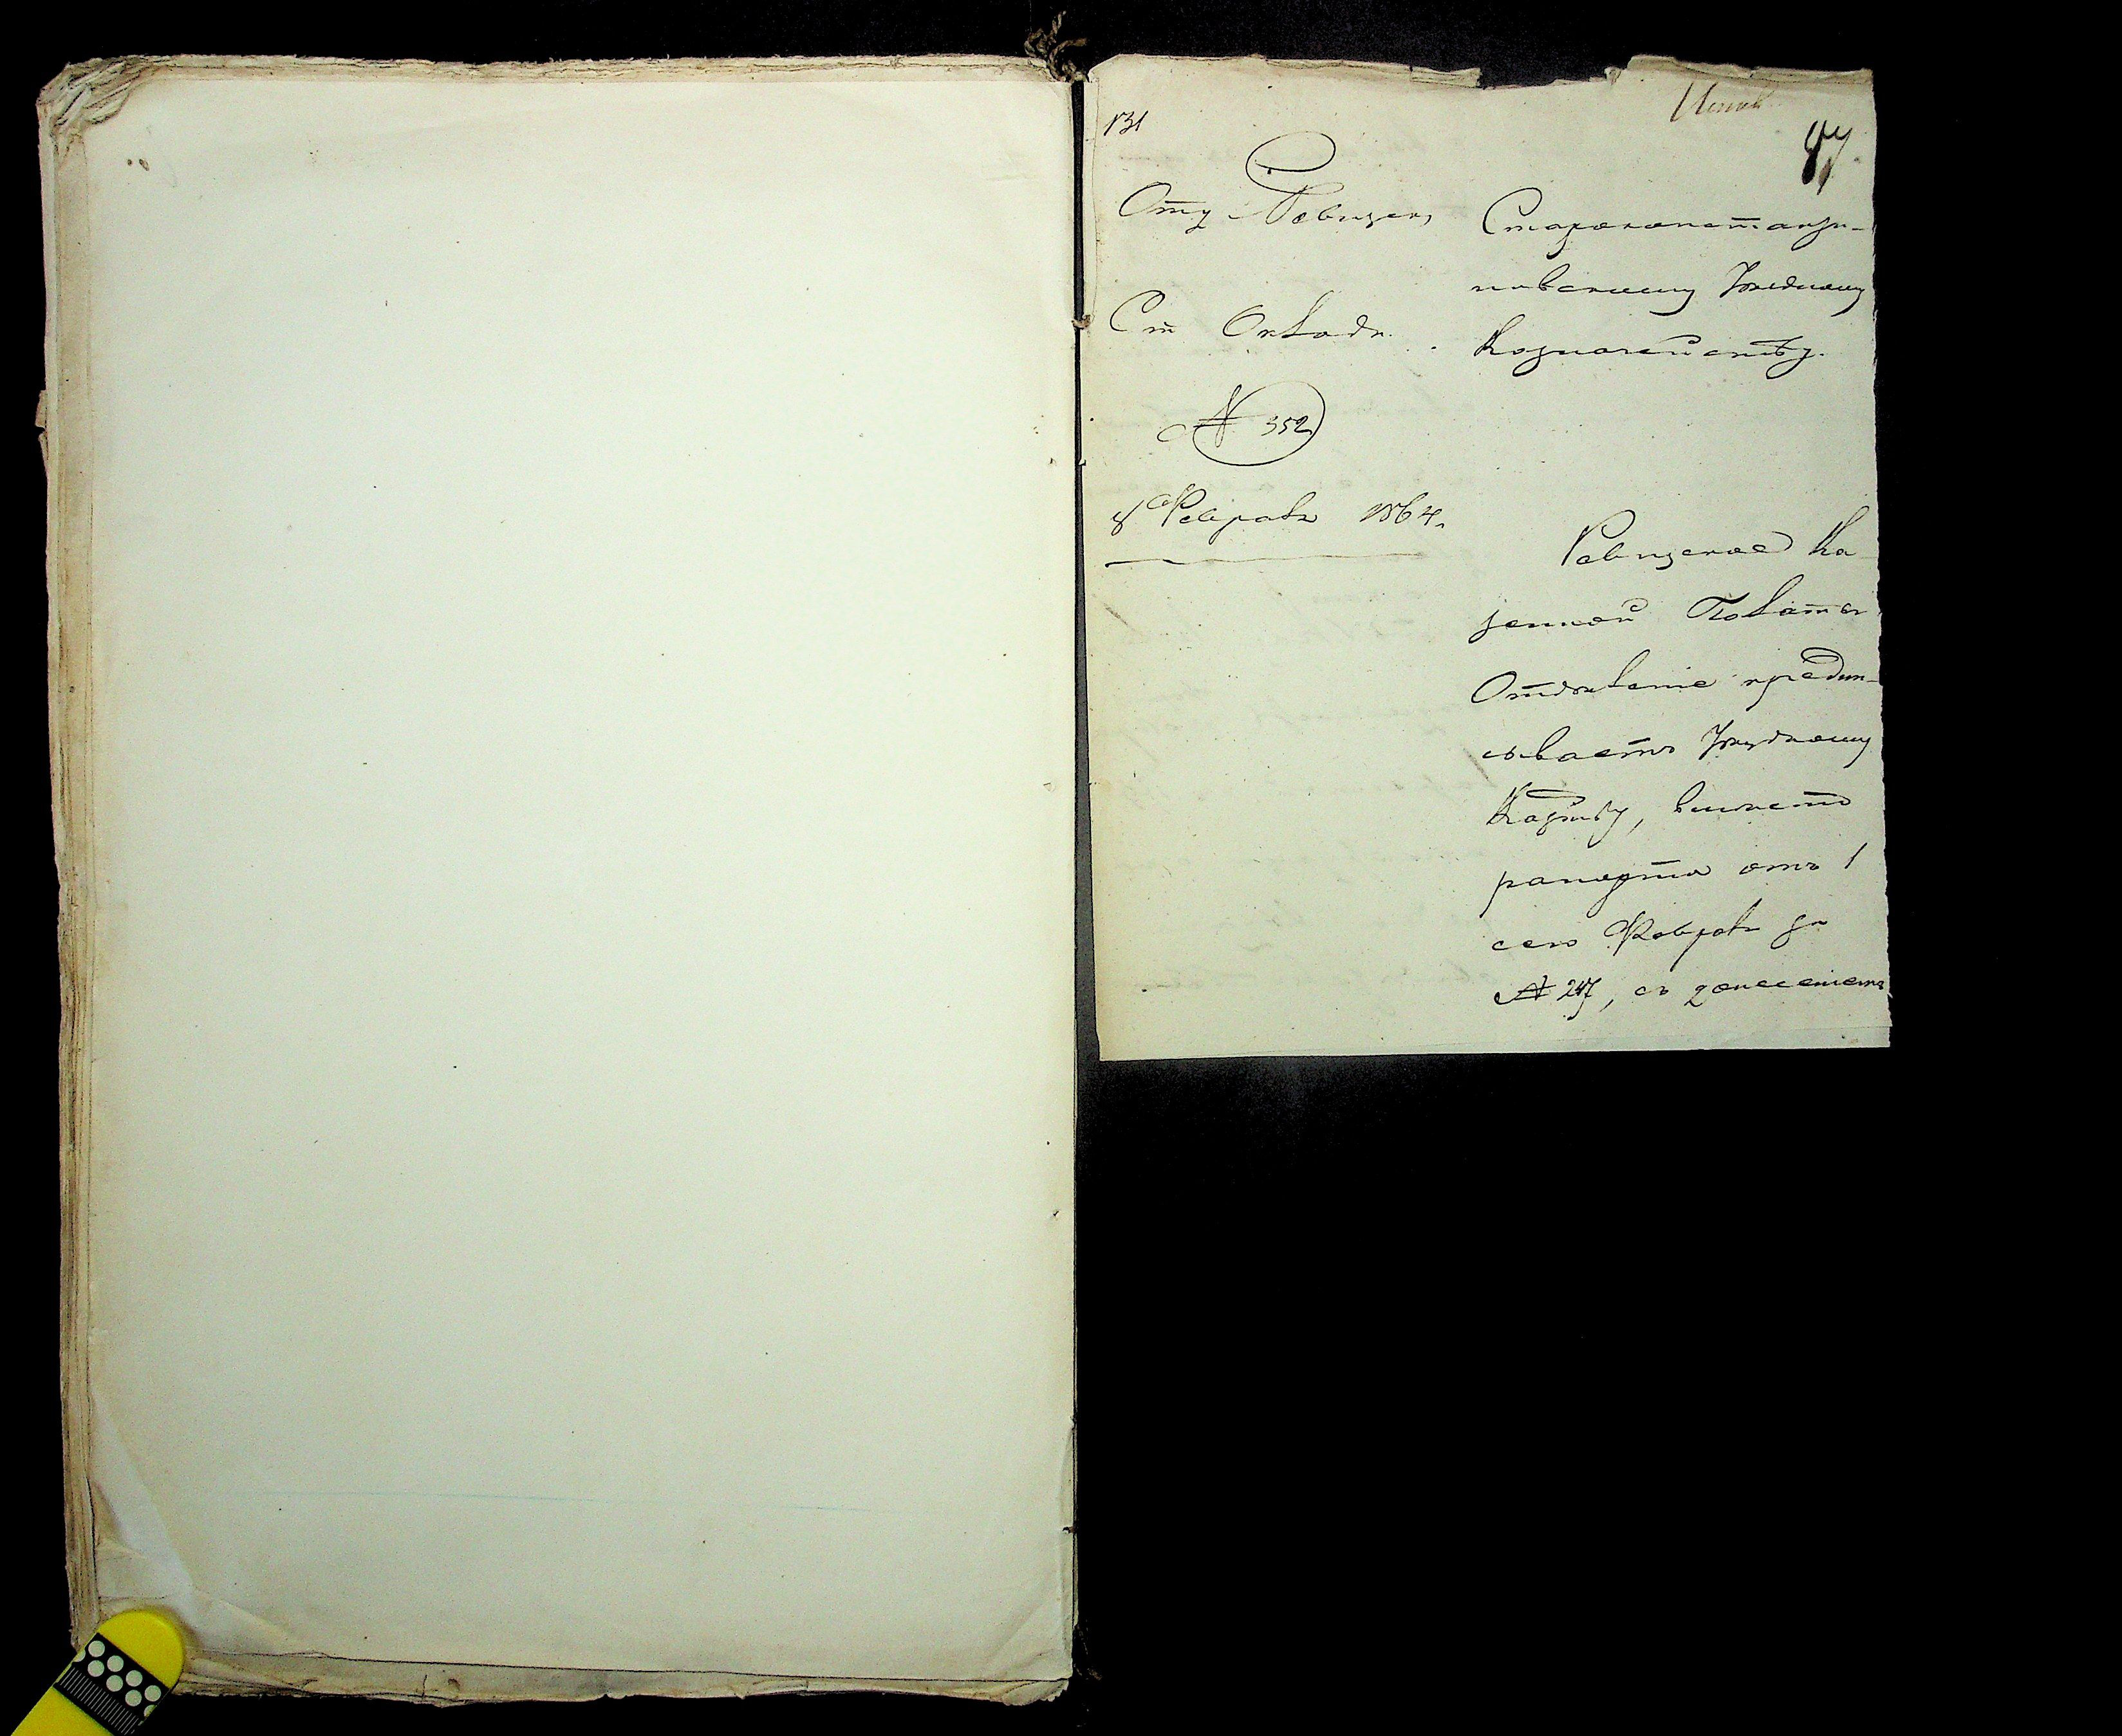 131
87
Отд Ревизск,
Ст Оклади.
№ 352
8 Феврал 1864.
Староконстанти-
новскому Уездному
Казначейству.
Ревизское Ка
зенной Палаты
Отделеніе предпи-
сываетъ Уездному
Казнву, вместо
рапорта отъ 1
сего Феврал за
№ 247, съ донесеніемъ